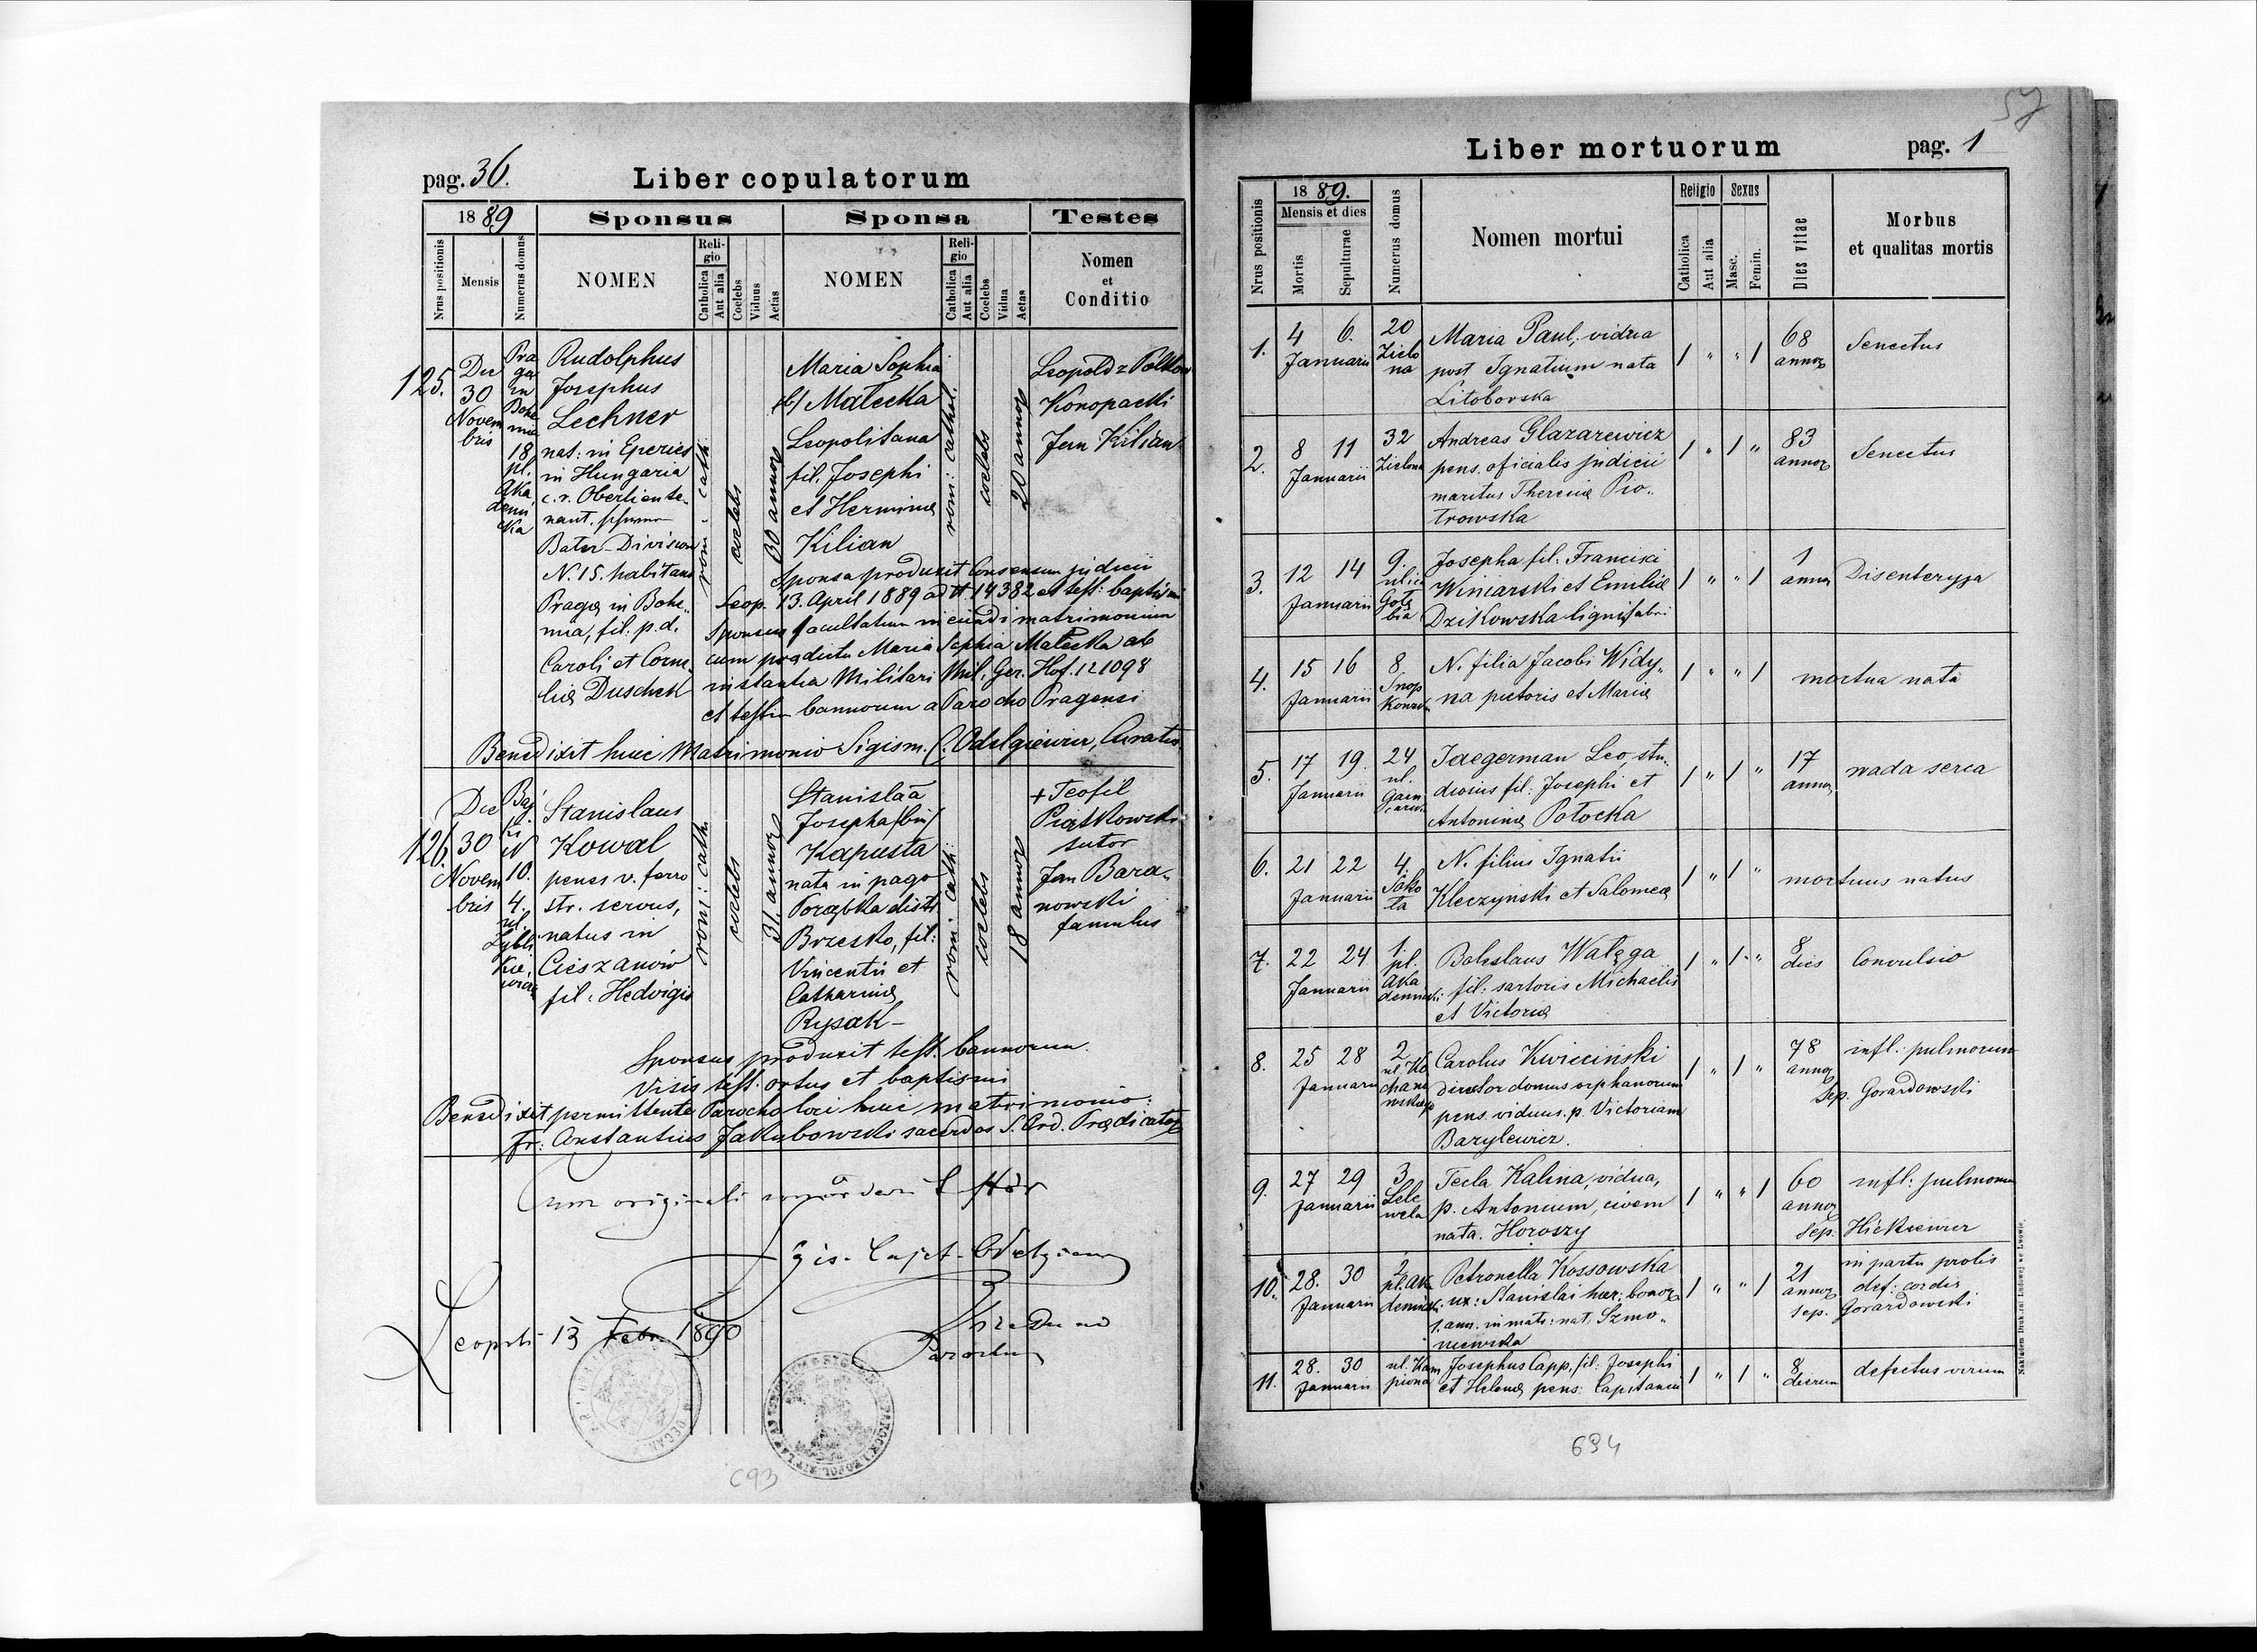 pag. 36.
Liber copulatorum
1889
Sponsus
Sponsa
Testes
Nrus positionis
Mensis
Numerus domus
NOMEN
Religio
Catholica
Aut alia
Coelebs
Viduus
Aetas
NOMEN
Religio
Catholica
Aut alia
Coelebs
Vidua
Aetas
Nomen
et
Conditio
125.
Die
30
Novem
bris
Pra
gae
in
Bohe
mia
18
pl.
Aka
demi
cka
Rudolphus
Josephus
Lechner
nat: in Eperies
in Hungaria
c. r. Oberliente-
nant.
Bater-Division
N. 15. habitans
Pragæ in Bohe-
mia, fil: p. d.
Caroli et Corne-
liæ Duschek
rom: cath:
coelebs
30 annor
Maria Sophia
(b) Matecka
Leopolitana
fil. Josephi
et Herminæ
Kilian
rom: cathol.
coelebs
20 annor
Leopold z Polkow
Konopacki
Jan Kilian
Sponsa produxit Consensum judicii
Leop. 13. April 1889 ad N 14382 et test: baptismi
Sponsus facultatem ineundi matrimonium
cum prædicta Maria Sophia Matecka ab
instantia Militari Mil. Ger. Hof. 12 1098
et testim bannorum a Parocho Pragensi
Benedixit huic Matrimonio Sigism. C. Odelgiewicz, Curatus
126.
Die
30
Novem
bris
10.
4.
ul.
Zybli
kie
wicza
Stanislaus
Kowal
penes v. ferro
str. servus,
natus in
Cieszanów
fil: Hedvigis
rom: cath.
coelebs
31. annor
Stanislaa
Josepha (bin)
Kapusta
nata in pago
Porąbka distr
Brzesko, fil:
Vincentii et
Catharinæ
Rysak-
rom. cath:
coelebs
18 annor
+ Teofil
Piątkowski
sutor
Jan Bara-
nowski
famulus
Sponsus produxit test. bannorum.
Visis test: ortus et baptismi
Benedixit permittente Parocho loci huic matrimonio:
Fr: Constantius Jakubowski sacerdos S. Ord. Prædicator
Cum originali
Leopoli 13 Febr. 1890
Parochus
693
57
Liber mortuorum
pag. 1
Nrus positionis
1889.
Mensis et dies
Mortis
Sepulturae
Numerus domus
Nomen mortui
Religio
Catholica
Aut alia
Sexus
Masc.
Femin.
Dies vitae
Morbus
et qualitas mortis
1.
4 6.
Januarii
20
Zielo
na
Maria Paul, vidua
post Ignatium nata
Litoborska
1 " " 1
68
annor
Senectus
2.
8 11
Januarii
32
Zielona
Andreas Glazarewicz
pens. oficialis judicii
maritus Theresiæ Pio-
trowska
1 " 1 "
83
annor
Senectus
3.
12 14
Januarii
9.
ulica
Gołę
bia
Josepha fil: Francisci
Winiarski et Emiliæ
Dzikowska lignifabri
1 " " 1
1
anni
Disenteryja
4.
15 16
Januarii
8
Snop
kowska
N. filia Jacobi Widy-
na pictoris et Mariæ
1 " " 1
mortua nata
5.
17 19.
Januarii
24
ul.
Garn
carska
Jaegerman Leo, stu-
diosus fil: Josephi et
Antoninæ Potocka
1 " 1 "
17
annor
wada serca
6.
21 22
Januarii
4.
Sako
ta
N. filius Ignatii
Kleczynski et Salomeæ
1 " 1 "
mortuus natus
7.
22 24
Januarii
1.
pl.
Aka
demicki
Boleslaus Watęga
fil: sartoris Michaelis
et Victoriæ
1 " 1 "
8
dies
Convulsio
8.
25 28
Januarii
2
ul Ko
chano
wskiego
Carolus Kwieciński
director domus orphanorum
pens. viduus. p. Victoriam
Barylewicz.
1 " 1 "
78
annor
infl: pulmonum
Sep. Gorardowski
9.
27 29
Januarii
3
Lele
wela
Tecla Kalina, vidua,
p. Antonium, civem
nata. Horoszy
1 " " 1
60
annor
infl: pulmonum
Sep. Hickiewicz
10.
28. 30
Januarii
2
pl. Aka
demicki
Petronella Kossowska
ux: Stanislai hær: bonor
1. ann. in matr: nat. Szmo-
niewska
1 " " 1
21
annor
in partu prolis
def: cordis
sep. Gorardowski
11.
28. 30
Januarii
ul. Kam
piona
Josephus Capp, fil: Josephi
et Helenæ pens: Capitanei
1 " 1 "
8
dierum
defectus virium
Nakładem Drukarni Ludowej we Lwowie.
634